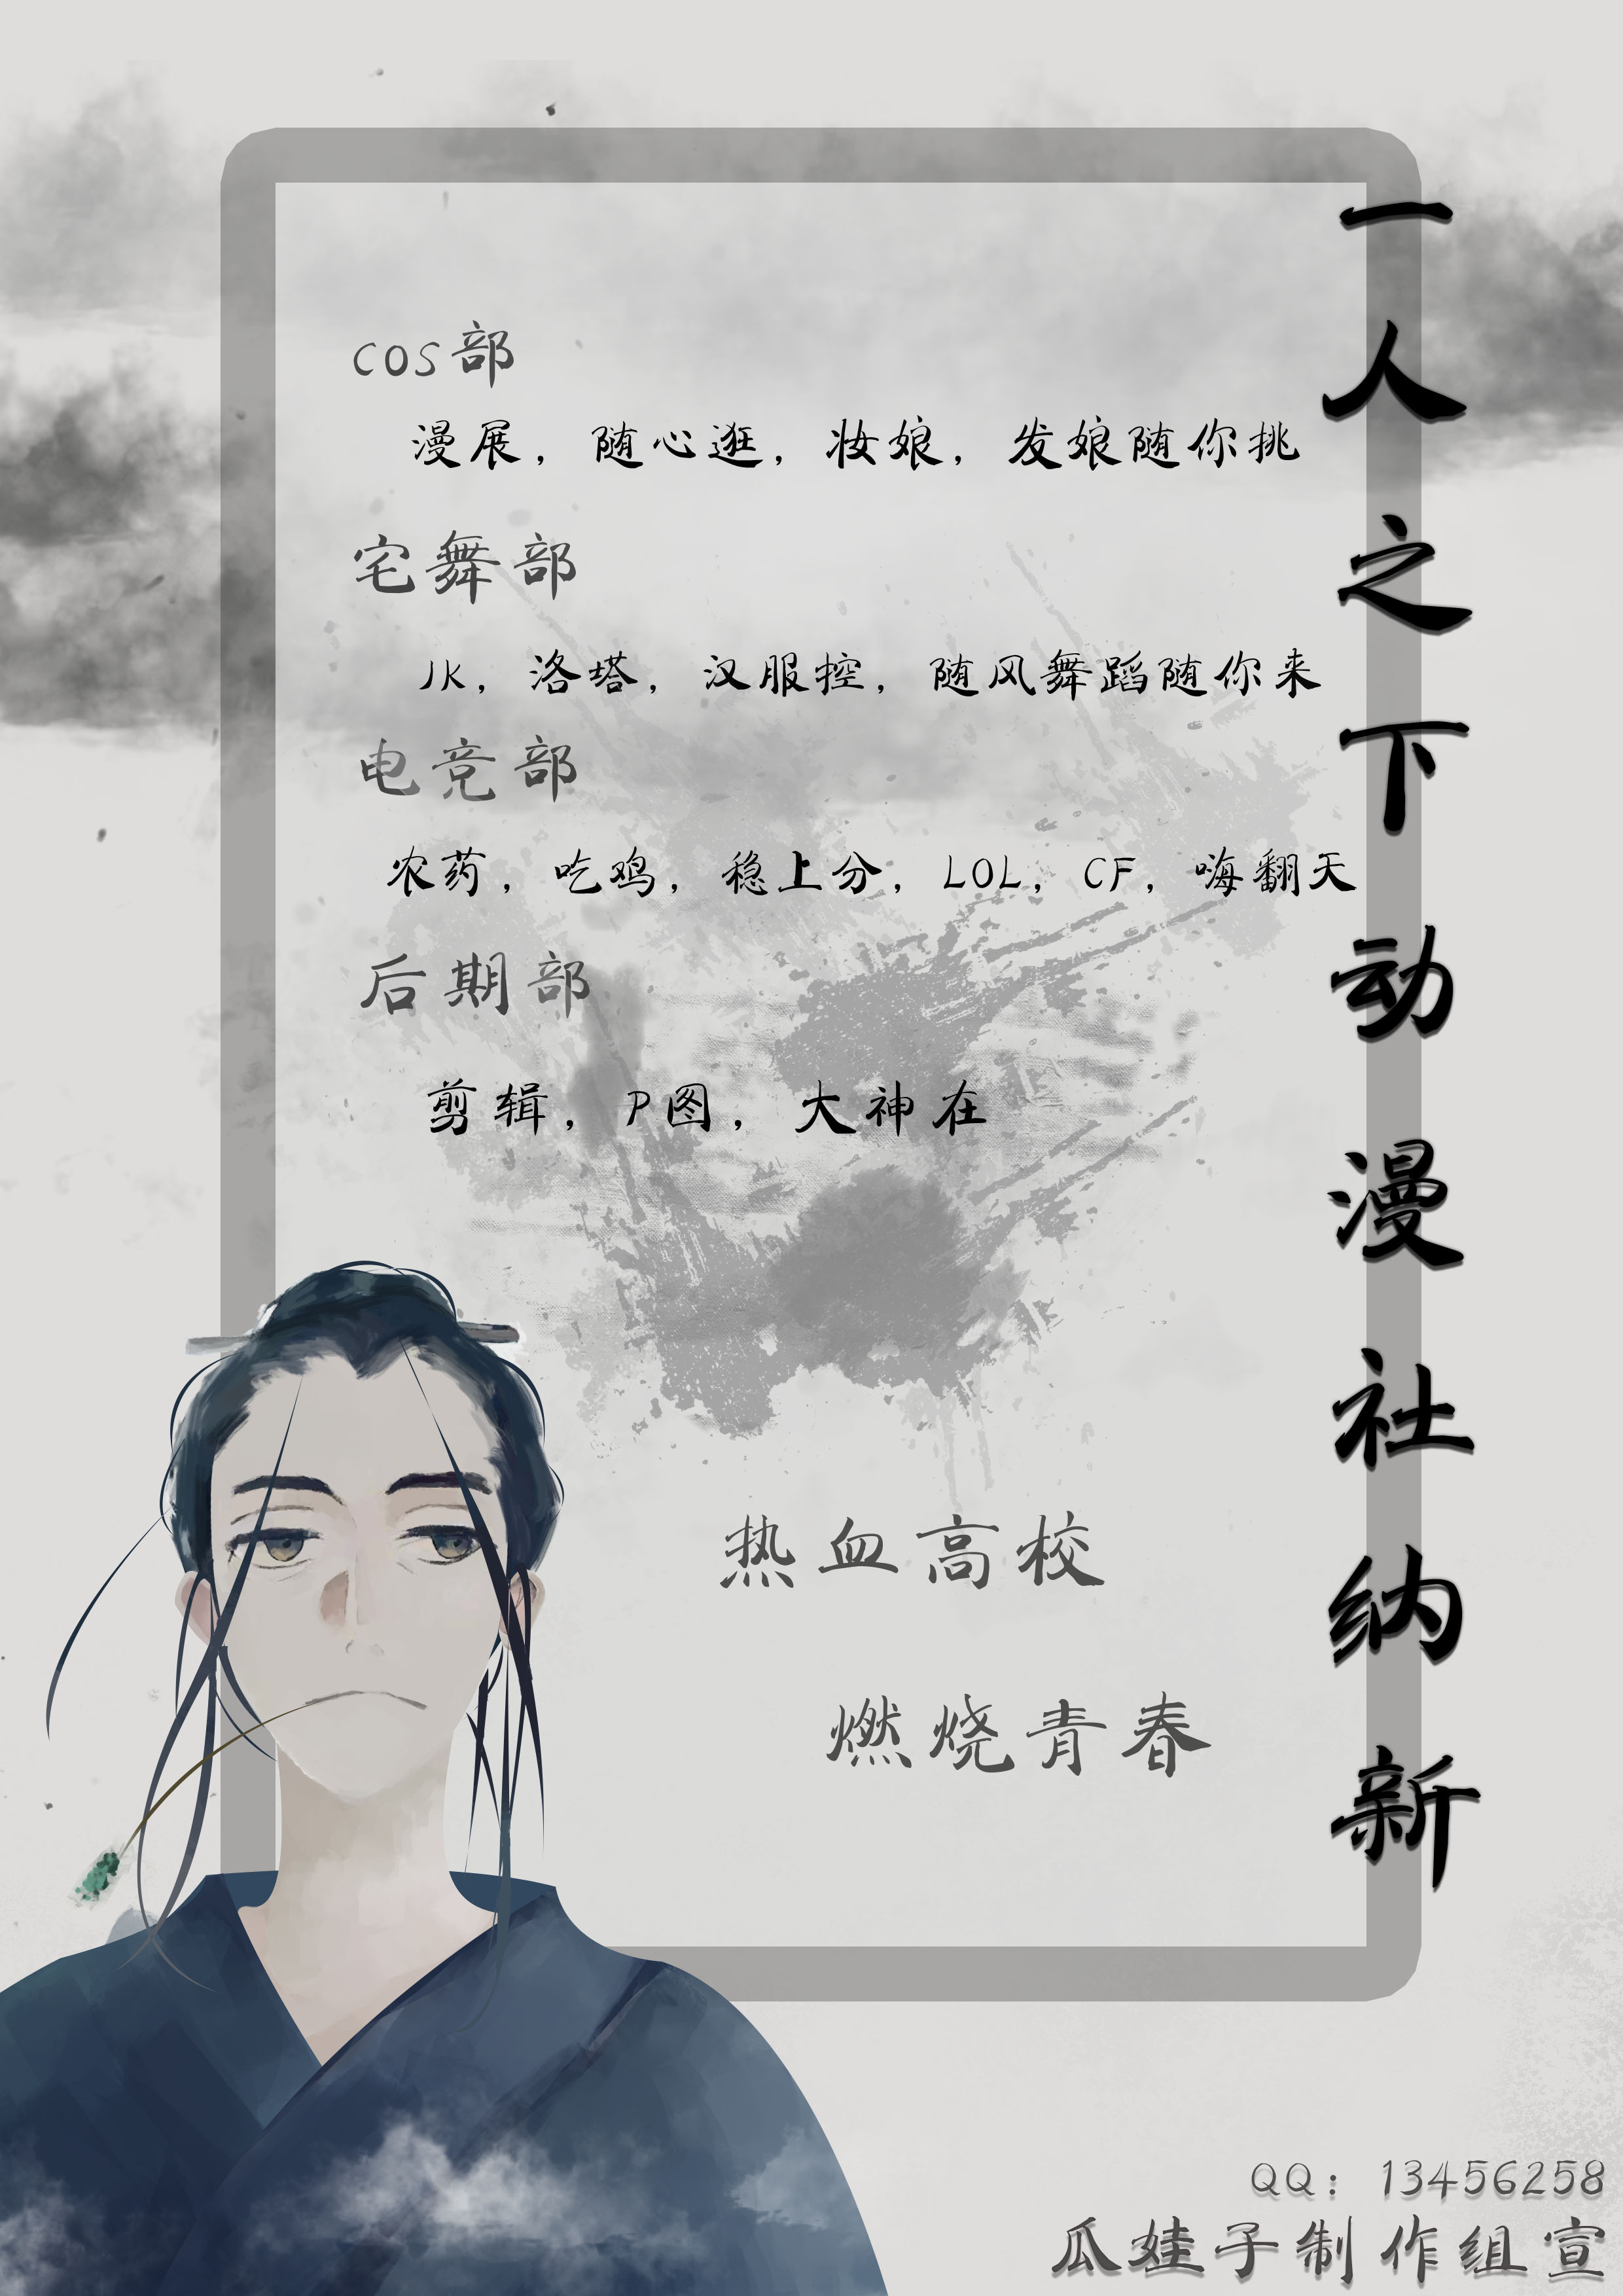 一人之下动漫社纳新
COS部
漫展，随心逛，妆娘，发娘随你挑
宅舞部
JK，洛塔，汉服控，随风舞蹈随你来
电竞部
农药，吃鸡，稳上分，LOL，CF，嗨翻天
后期部
剪辑，P图，大神在
热血高校
燃烧青春
QQ：13456258
瓜娃子制作组宣